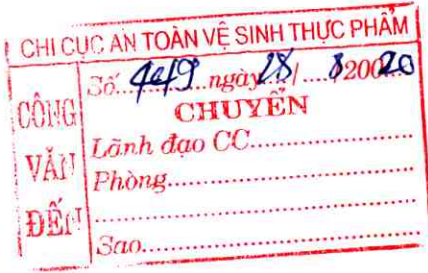 CHI CỤC AN TOÀN VỆ SINH THỰC PHẨM
CÔNG VĂN ĐẾN
Số.........ngày 28/....8 200 20
CHUYỂN
Lãnh đạo CC....................
Phòng..............................
..........................................
Sao...................................